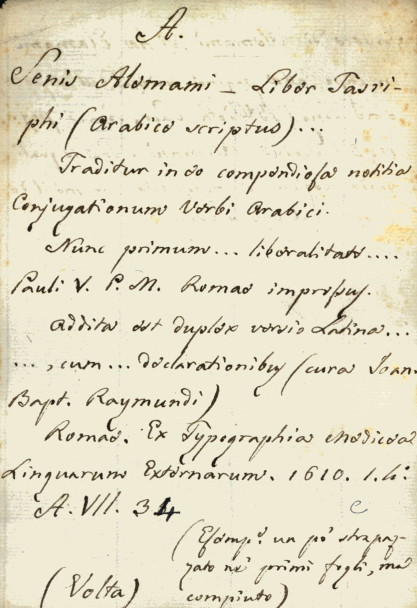 A.
Senis Alemami _ Liber Tasri-
phi (Arabice scriptus)...
Traditur in eo compendiosa notitia
Conjugationum Verbi Arabici.
Nunc primum... liberalitate....
Pauli V. P. M. Romae impressus.
Addita est duplex versio Latina...
..., cum... declarationibus (cura Joan.
Bapt. Raymundi)
Romae. Ex Typographia Medicea
Linguarum Externarum. 1610. 1. 4:
A. VII. 34 c
(Esemp.e un pò strapaz-
zato ne' primi fogli, ma
(Volta) compiuto)